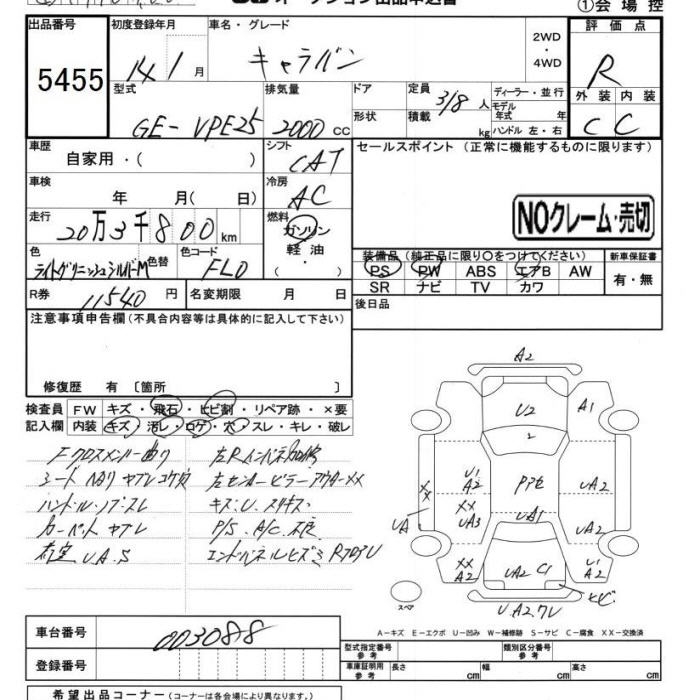 オークション出品申込書
①会場控
出品番号
5455
初度登録年月
14 1 月
車名・グレード
キャラバン
2WD
・
4WD
評価点
R
外装 内装
C C
型式
GE-VPE25
排気量
2000 cc
ドア
形状
定員
3/8 人
積載
kg
ディーラー・並行
モデル
年式 年
ハンドル 左・右
車歴
自家用・( )
シフト
CAT
セールスポイント (正常に機能するものに限ります)
車検
年 月( 日)
冷房
AC
NOクレーム・売切
走行
20万3千800km
燃料
ガソリン
軽油
・
( )
色
ライトグリニッシュシルバーM
色替
色コード
FL0
装備品 (純正品に限り〇をつけてください)
新車保証書
PS PW ABS エアB AW
SR ナビ TV カワ
有・無
R券
11540 円
名変期限 月 日
後日品
注意事項申告欄(不具合内容等は具体的に記入して下さい)
修復歴 有 〔箇所 〕
検査員 FW キズ・飛石・ヒビ割・リペア跡・×要
記入欄 内装 キズ・汚レ・ロゲ・穴・スレ・キレ・破レ
Fクロスメンバー曲り
シート ヘタリ ヤブレ コゲ穴
ハンドル・ノブ スレ
カーペット ヤブレ
荷室 UA.S
左センターピラーアウターXX
キズ.U.スリキズ
P/S A/C 不良
A2
U2
A1
2
XX
XX
UA
U1
A2
XX
UA3
Pアセ
UA1
UA2
UA2
XX
A2
UA2 C1
U1
A2
ヒビ
スペア
UA2ワレ
A-キズ E-エクボ U-凹み W-補修跡 S-サビ C-腐食 XX-交換済
車台番号
003088
登録番号
型式指定番号
参考
類別区分番号
参考
車庫証明用
参考
長さ cm
幅 cm
高さ cm
希望出品コーナー (コーナーは各会場により異なります。)